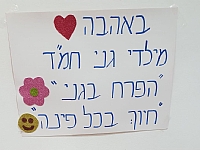 באהבה
מילדי גני חמ"ד
"הפרח בגני"
"חיוך בכל פינה"